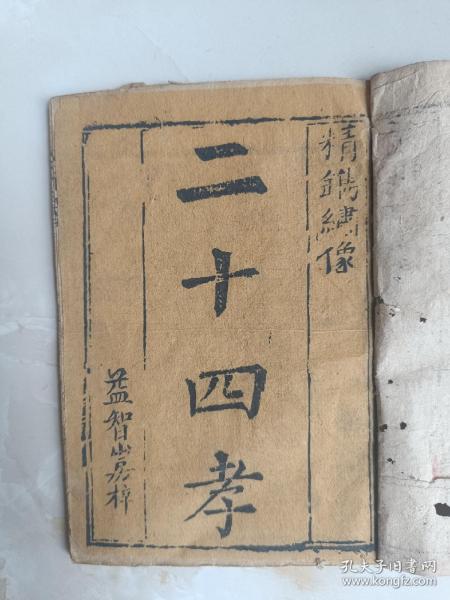 精鐫繡像
二十四孝
益智山房梓
孔夫子旧书网
www.kongfz.com